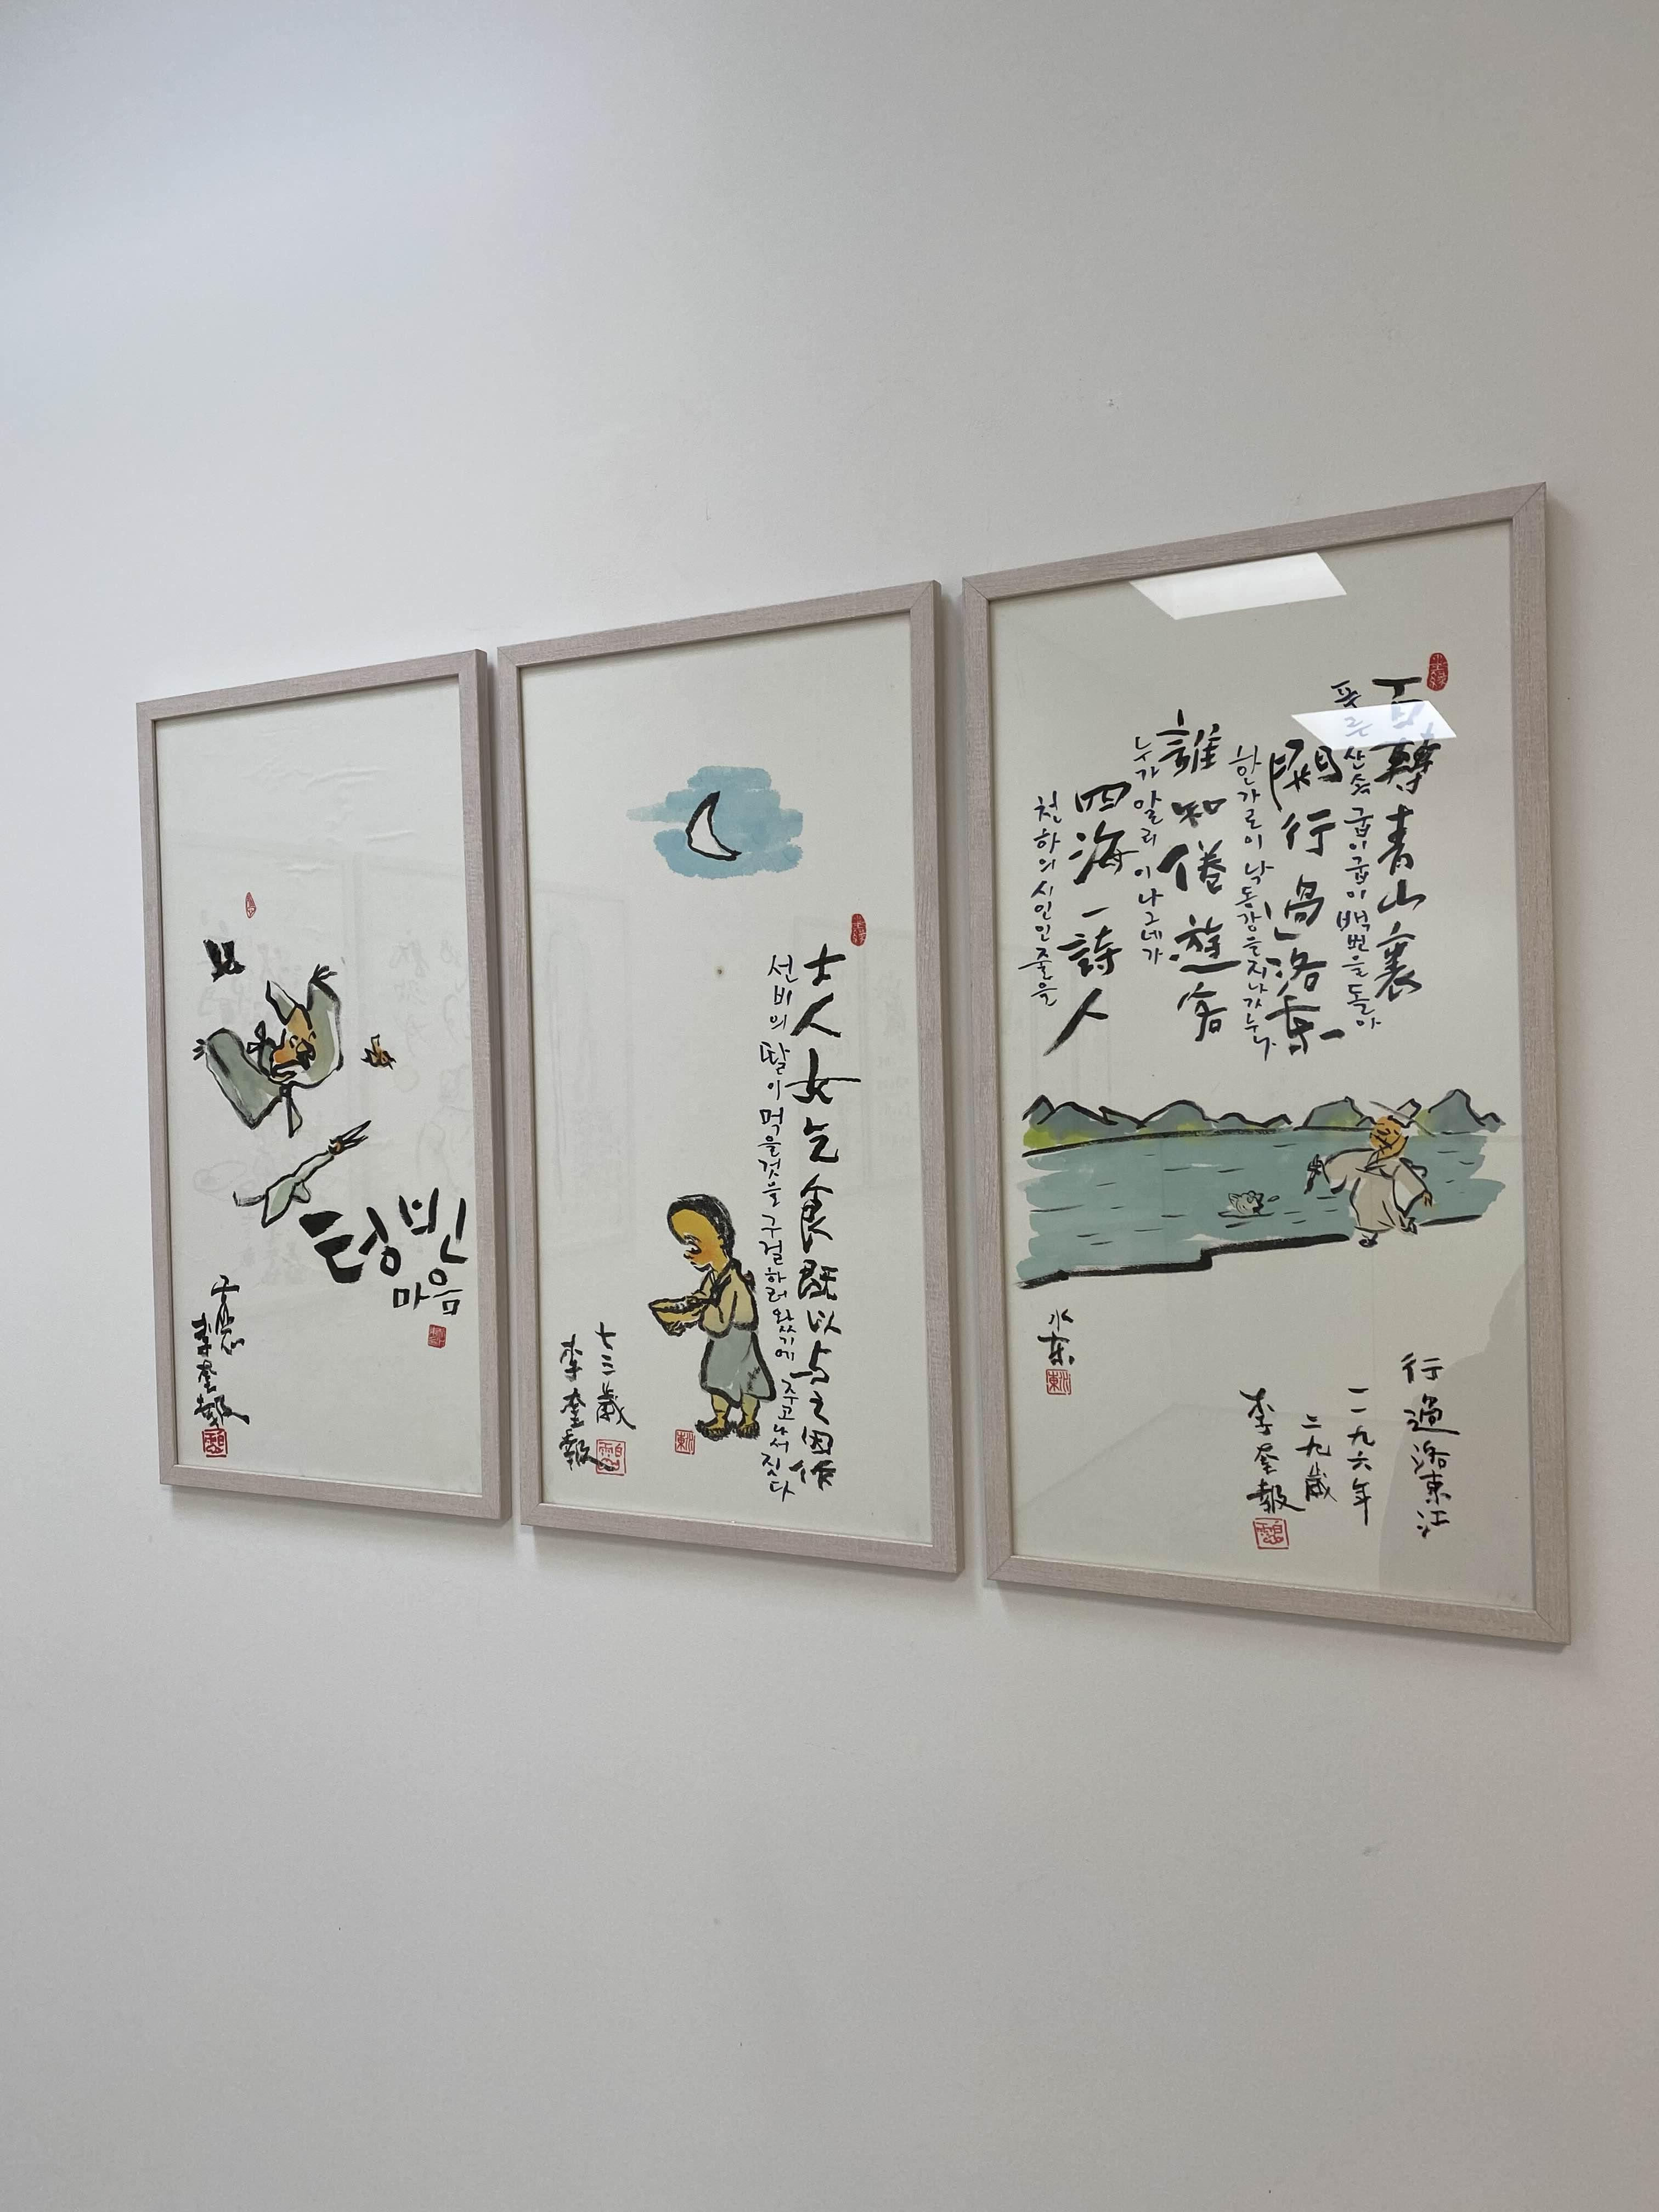 텅 빈
마음
李奎報
士人女乞食旣以与之因作
선비의 딸이 먹을것을 구걸하러 왔기에 주고나서 짓다
七三歲
李奎報
百轉青山裏
푸른 산속 굽이굽이 백번을 돌아
閑行過洛東
한가로이 낙동강을 지나가누나
誰知倦遊客
누가 알리 이 나그네가
四海一詩人
천하의 시인인 줄을
水東
行過洛東江
一一九六年
二九歲
李奎報